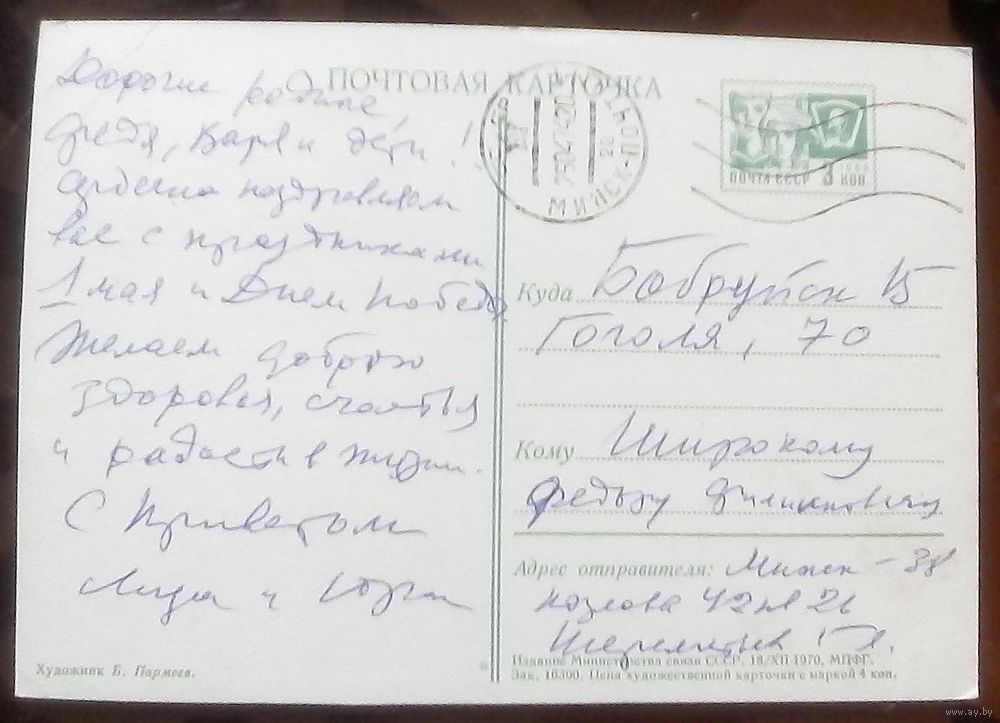 ПОЧТОВАЯ КАРТОЧКА
Дорогие родные,
Федя, Варя и дети!
Сердечно поздравляем
вас с праздниками
1 мая и Днем Победы
Желаем доброго
здоровья, счастья
и радости в жизни.
С приветом
Лида и Юрий
Художник Б. Пармеев.
МИНСК-ПОЧТАМТ
ПОЧТА СССР 3 КОП
Куда Бобруйск 15
Гоголя, 70
Кому Широкому
Федору
Адрес отправителя: Минск - 38
Козлова
Издание Министерства связи СССР. 18/XII-1970. МПФГ.
Зак. 16300. Цена художественной карточки с маркой 4 коп.
www.ay.by